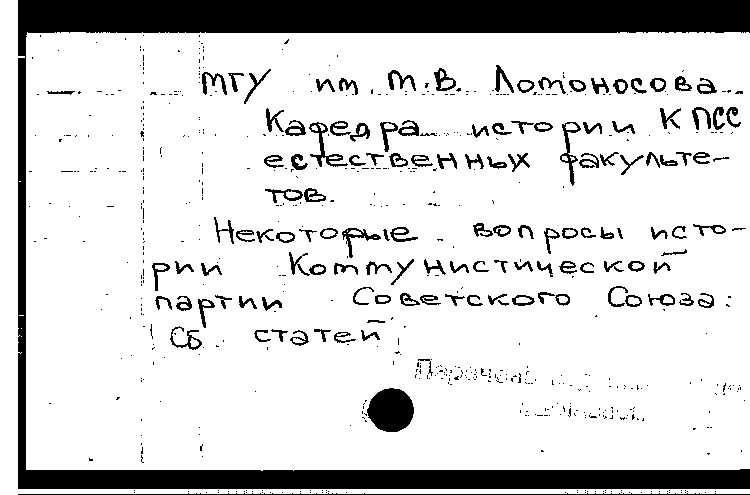 МГУ им. М.В. Ломоносова.
Кафедра истории КПСС
естественных факульте-
тов.
Некоторые вопросы исто-
рии Коммунистической
партии Советского Союза:
Сб. статей
Перечень